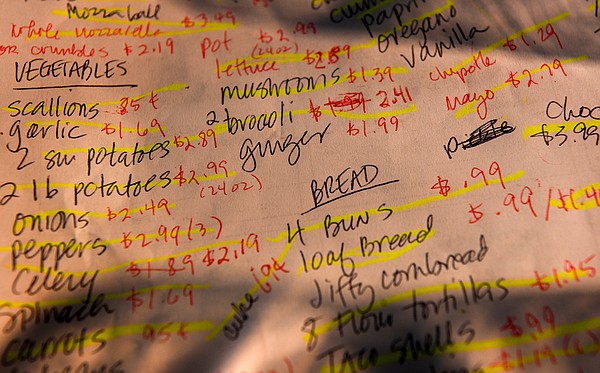 Mozzaball
whole mozzarella $3.49
or crumbles $2.19
VEGETABLES
scallions 85¢
garlic $1.69
2 sw potatoes $2.89
2 lb potatoes $2.99
(24oz)
onions $2.49
peppers $2.99 (3)
Celery $1.89 $2.19
spinach $1.69
carrots 95¢
pot $2.99
(24oz)
lettuce $2.89
mushrooms $1.39
2 brocoli $ 2.41
ginger $1.99
BREAD
4 Buns $.99
loaf Bread $.99/$1.4
Jiffy cornbread
8 flour tortillas $1.95
Taco shells $.99
$1.19 (6)
cube 69¢
cumin
papri
oregano
vanilla
chipotle $1.29
mayo $2.79
Choc
$3.99